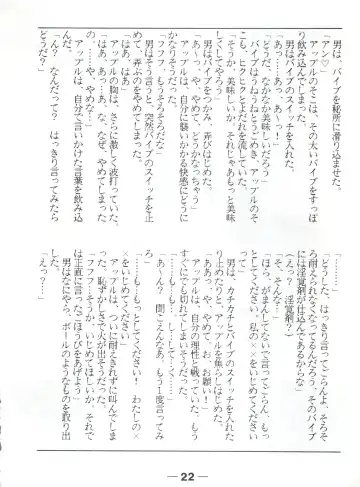 男は、バイブを秘所に滑り込ませた。
「アン♡」
アップルのそこは、その太いバイブをすっぽ
り飲み込んでしまった。
男はバイブのスイッチを入れた。
「あっ……あっ……」
「どうだ、なかなか美味しいだろう」
バイブはうねうねとうごめき、アップルのそ
こも、ヒクヒクとよだれを流していた。
「そうか、美味しいか、それじゃあもっと美味
しくしてやろう」
男はバイブをつかみ、弄びはじめた。
「あ〜っ、や、やめて、どうかなっちゃう」
アップルは、自分に襲いかかる快感にどうに
かなりそうだった。
「フフフ、もうそろそろだな」
男はそう言うと、突然バイブのスイッチを止
めて、弄ぶのをやめてしまった。
「はぁ、はぁ、はぁ」
アップルの胸は、さらに激しく波打っていた。
「あ、あっ…あ、な、なぜ、やめてしまった
の、……や、やめな…」
アップルは、自分で言いかけた言葉を飲み込
んだ。
「ん？　なんだって？　はっきり言ってみたら
どうだ？」
「………」
「どうした、はっきり言ってごらんよ、そろそ
ろ耐えられなくなってるんだろう、そのバイブ
には淫覚剤が仕込んであるからな」
（えっ？　淫覚剤？）
「そ、そんな…」
「ほら、がまんしてないで言ってごらん、もっ
としてください、私の××をいじめてください
ってね」
男は、カチカチとバイブのスイッチを入れた
り止めたりと、アップルを焦らしはじめた。
「ああっ、や、やめて、お、お願い！」
アップルは、自分の理性と戦っていた、もう
すぐにでも切れてしまいそうだった。
「…も…もっと……して……」
「あ〜ん？　聞こえんなあ、もう１度言ってみ
ろ」
「……も…もっとしてください！　わたしの×
×をいじめてください」
アップルは、ついに耐えきれずに叫んでしま
った、恥ずかしさで火が出そうだった。
「フフフ…そうか、いじめてほしいか、それで
は正直に言ったごほうびをあげよう」
男はなにやら、ボールのようなものを取り出
した。
「えっ？…」
― 22 ―